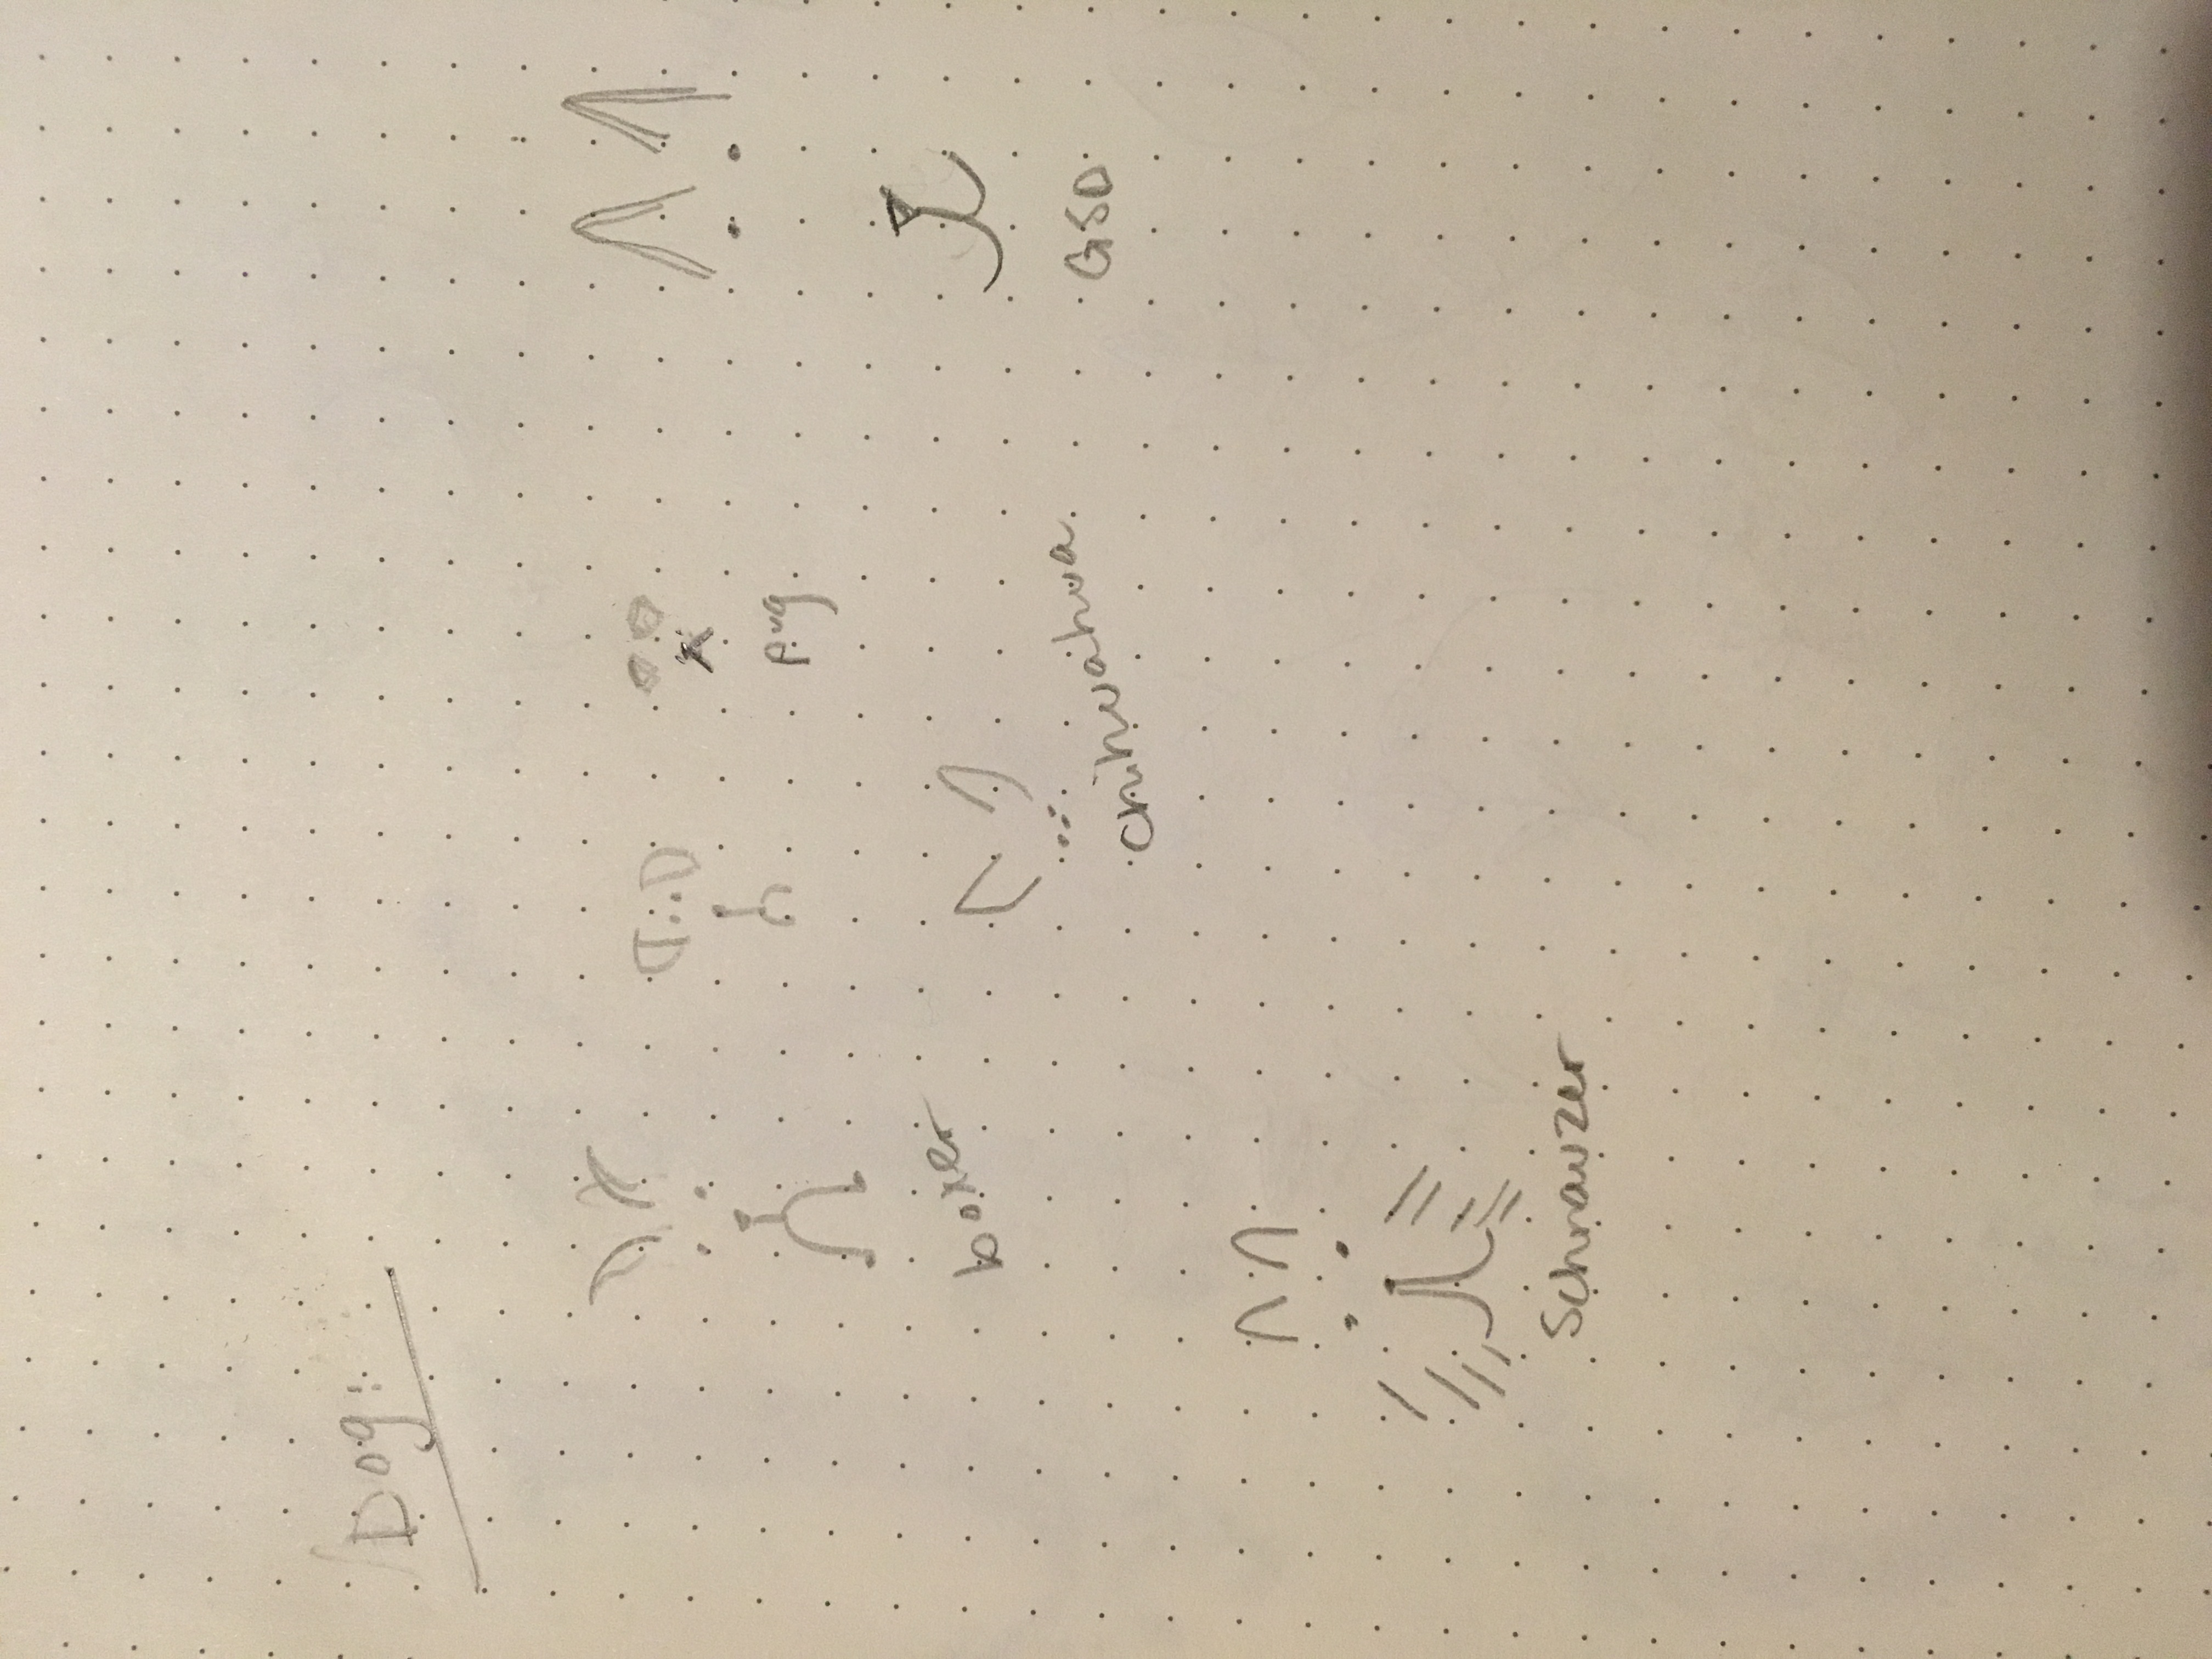 Dog:
pug
boxer
chihuahua
GSD
Schnauzer